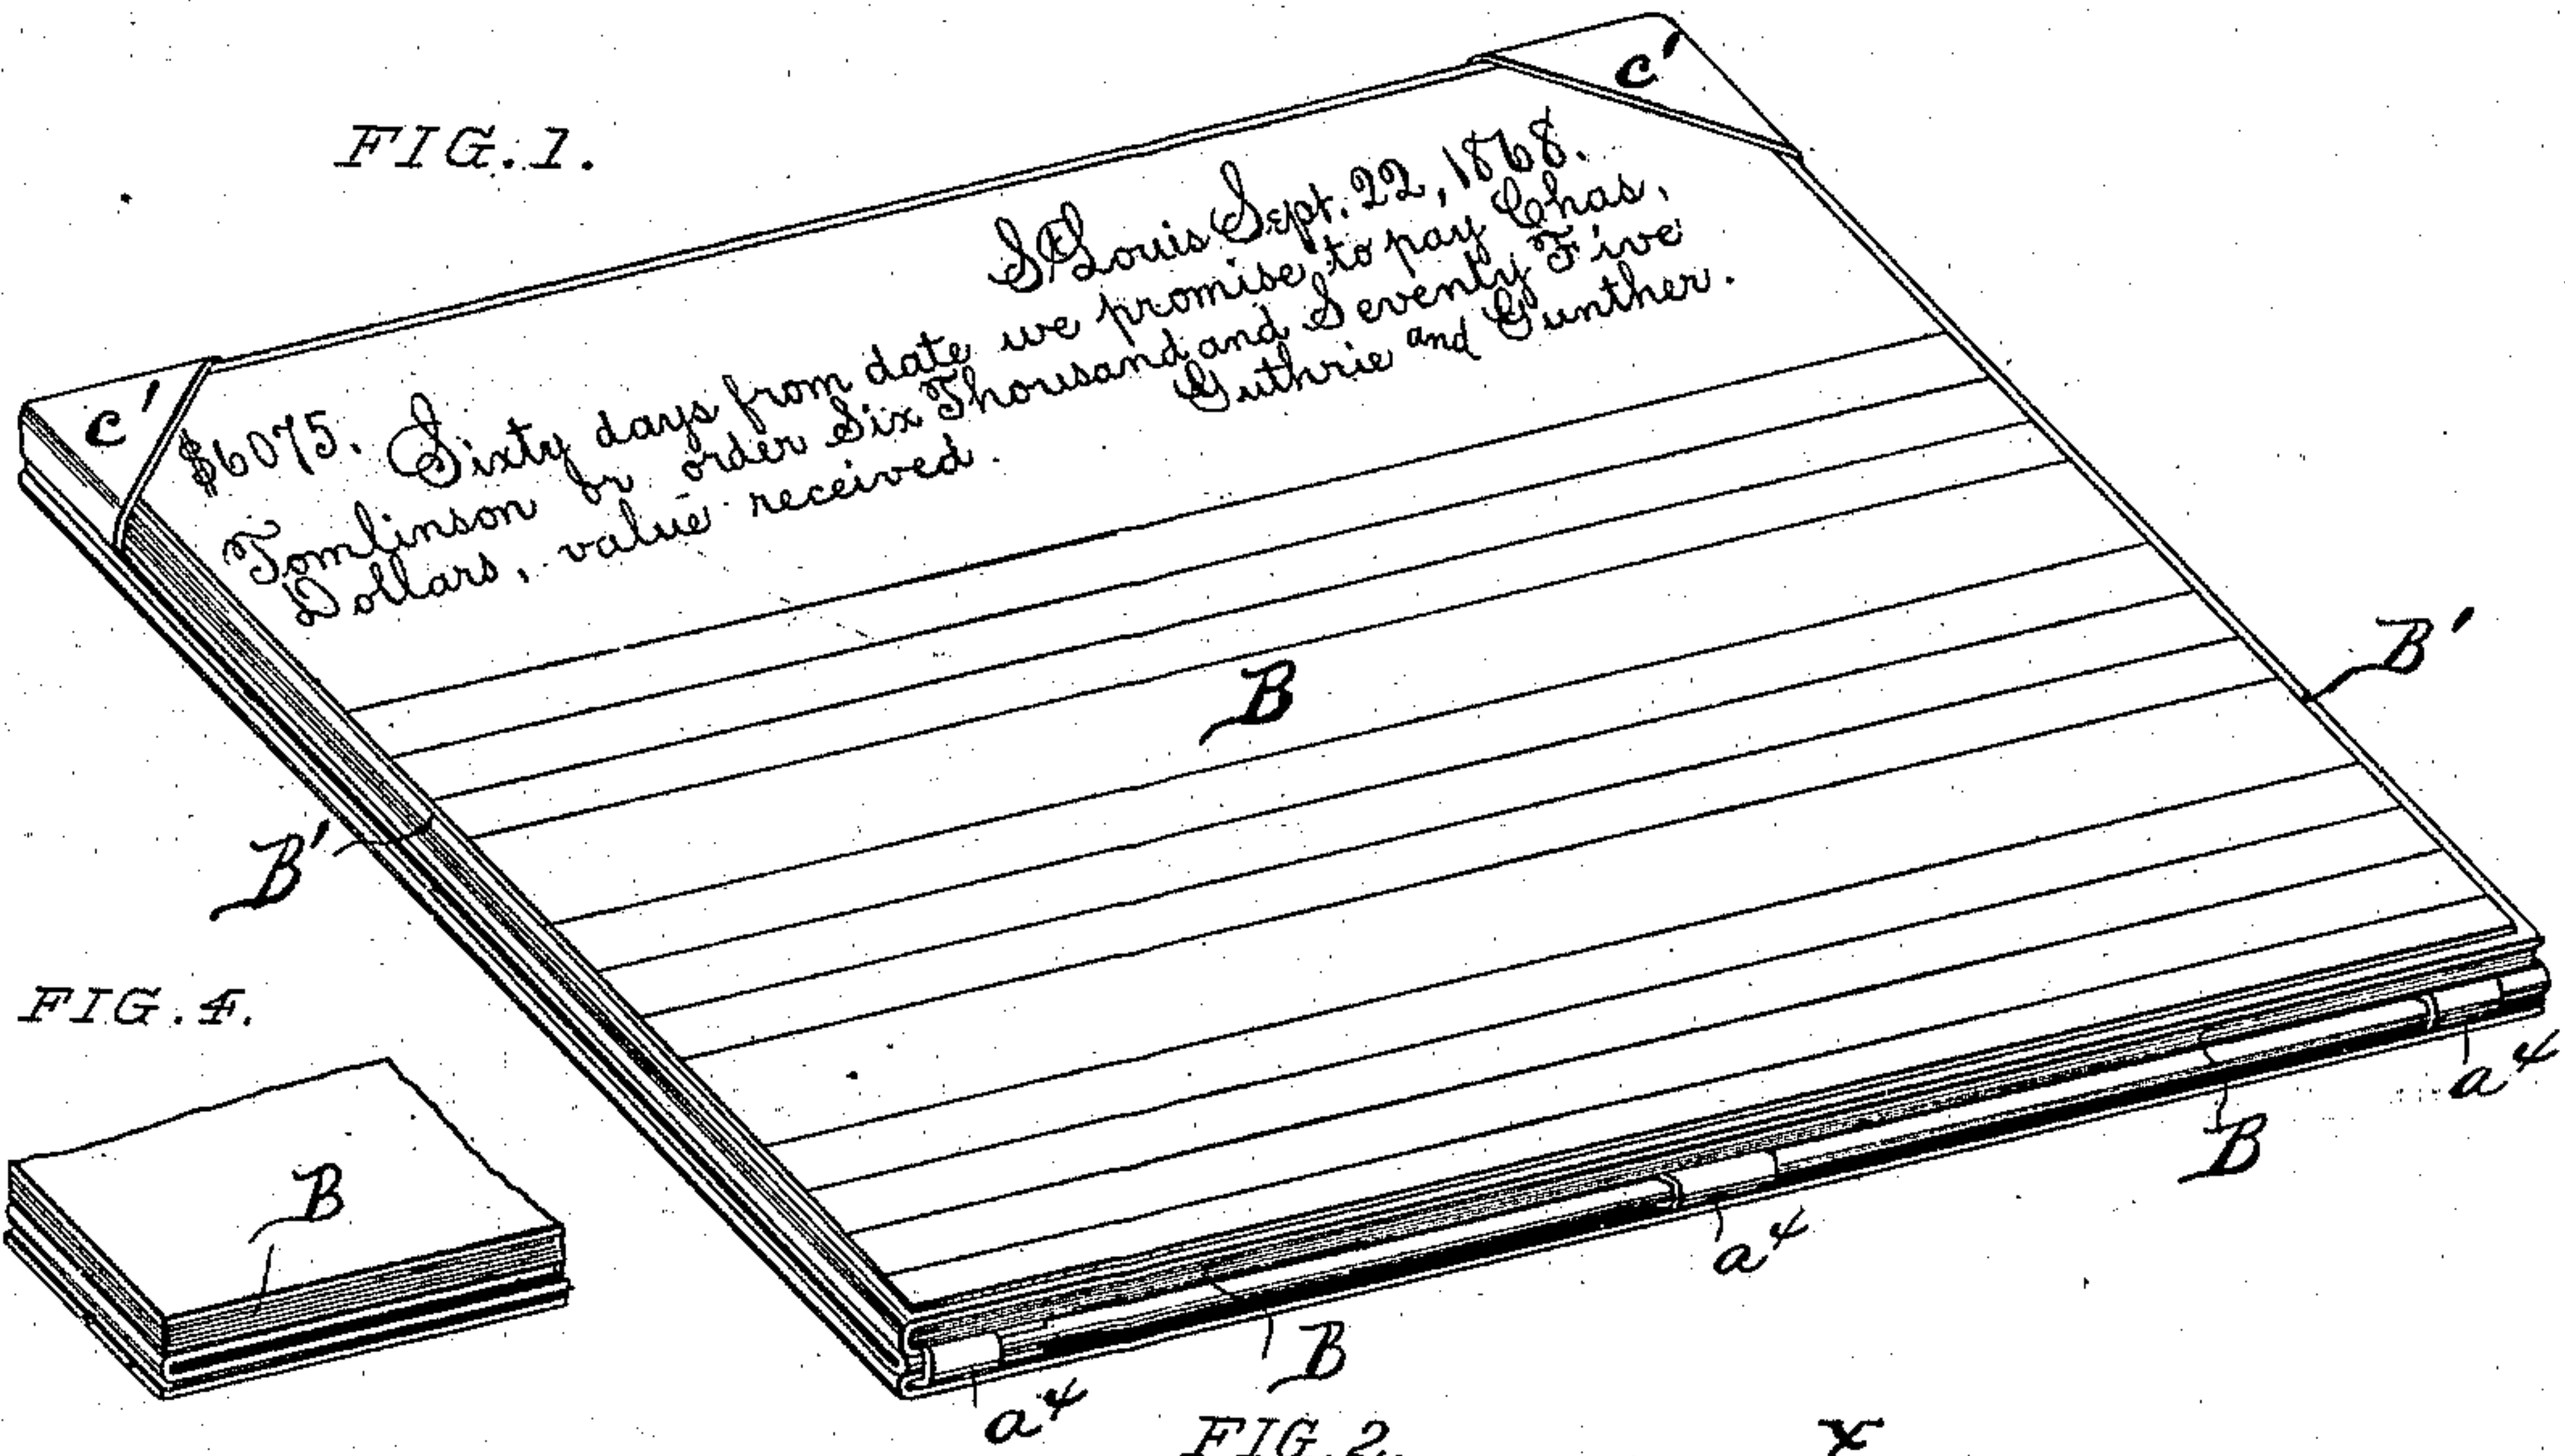 FIG. 1.
C'
St Louis Sept. 22, 1868.
$6075. Sixty days from date we promise to pay Chas,
Tomlinson or order Six Thousand and Seventy Five
Dollars, value received. Guthrie and Gunther.
C'
B
B'
B'
FIG. 4.
B
a⁴
B
a⁴
B
a⁴
FIG. 2.
x